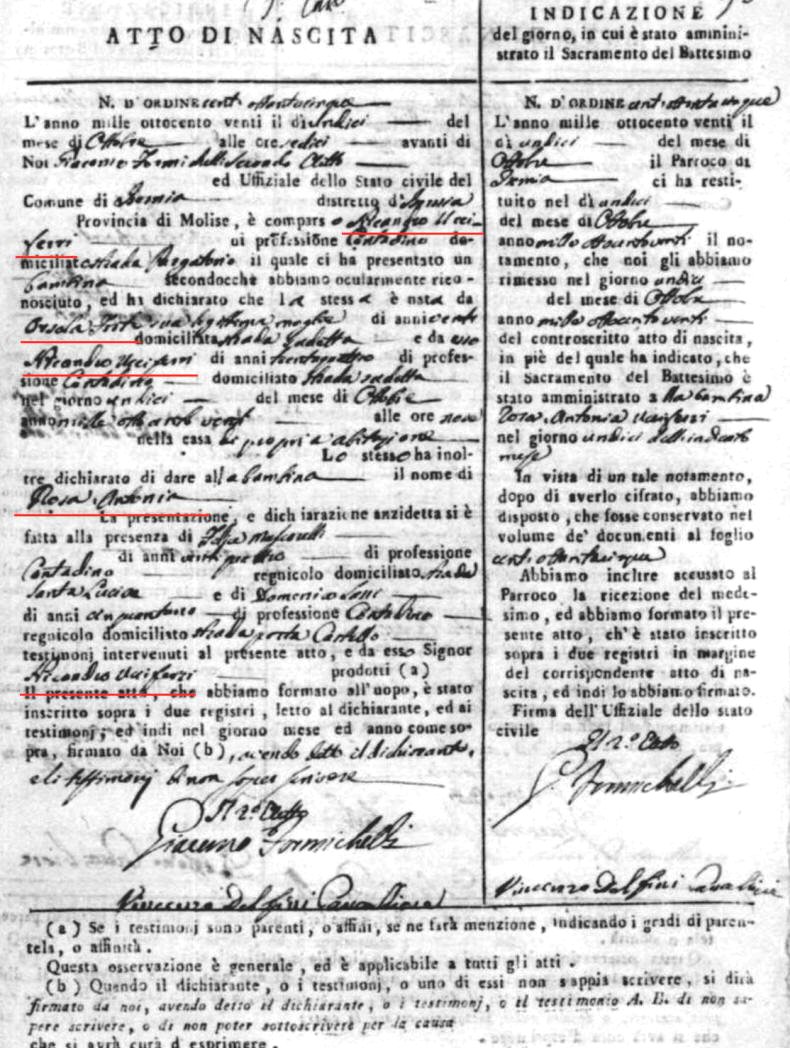 ATTO DI NASCITA
N. D'ORDINE cent ottantacinque
L'anno mille ottocento venti il dì undici del
mese di Ottobre alle ore sedici avanti di
Noi Secondo Eletto
ed Uffiziale dello Stato civile del
Comune di Isernia distretto d'Isernia
Provincia di Molise, è comparso Nicandro Ucci
ferri di professione Contadino do-
miciliato strada Purgatorio il quale ci ha presentato un
bambina secondocchè abbiamo ocularmente rico-
nosciuto, ed ha dichiarato che la stessa è nata da
Orsola Forte sua legittima moglie di anni
domiciliata strada sudetta e da esso
Nicandro Ucciferri di anni trentaquattro di profes-
sione Contadino domiciliato strada sudetta
nel giorno undici del mese di Ottobre
anno mille ottocento venti alle ore nove
nella casa di propria abitazione
Lo stesso ha inol-
tre dichiarato di dare alla bambina il nome di
Rosa Antonia
La presentazione, e dichiarazione anzidetta si è
fatta alla presenza di
di anni di professione
Contadino regnicolo domiciliato strada
Santa Lucia e di Domenico
di anni di professione Contadino
regnicolo domiciliato strada porta Castello
testimonj intervenuti al presente atto, e da esso Signor
Nicandro Ucciferri prodotti (a)
Il presente atto, che abbiamo formato all'uopo, è stato
inscritto sopra i due registri, letto al dichiarante, ed ai
testimonj; ed indi nel giorno mese ed anno come so-
pra, firmato da Noi (b), avendo detto il dichiarante,
e li testimonj di non saper scrivere
Il 2º Eletto
Giacomo Formichelli
Vincenzo Delfini Cancelliere
INDICAZIONE
del giorno, in cui è stato ammini-
strato il Sacramento del Battesimo
N. D'ORDINE cent ottanta cinque
L'anno mille ottocento venti il
dì undici del mese di
Ottobre il Parroco di
Isernia ci ha resti-
tuito nel dì undici
del mese di Ottobre
anno mille ottocento venti il no-
tamento, che noi gli abbiamo
rimesso nel giorno undici
del mese di Ottobre
anno mille ottocento venti
del controscritto atto di nascita,
in piè del quale ha indicato, che
il Sacramento del Battesimo è
stato amministrato alla bambina
Rosa Antonia Ucciferri
nel giorno undici dell'indicato
mese
In vista di un tale notamento,
dopo di averlo cifrato, abbiamo
disposto, che fosse conservato nel
volume de' documenti al foglio
cent ottanta cinque
Abbiamo inoltre accusato al
Parroco la ricezione del mede-
simo, ed abbiamo formato il pre-
sente atto, ch'è stato inscritto
sopra i due registri in margine
del corrispondente atto di na-
scita, ed indi lo abbiamo firmato.
Firma dell'Uffiziale dello stato
civile
Il 2º Eletto
G. Formichelli
Vincenzo Delfini Cancelliere
(a) Se i testimonj sono parenti, o affini, se ne farà menzione, indicando i gradi di paren-
tela, o affinità.
Questa osservazione è generale, ed è applicabile a tutti gli atti.
(b) Quando il dichiarante, o i testimonj, o uno di essi non sappia scrivere, si dirà
firmato da noi, avendo detto il dichiarante, o i testimonj, o il testimonio A. B. di non sa-
pere scrivere, o di non poter sottoscrivere per la causa
che si avrà cura d'esprimere.